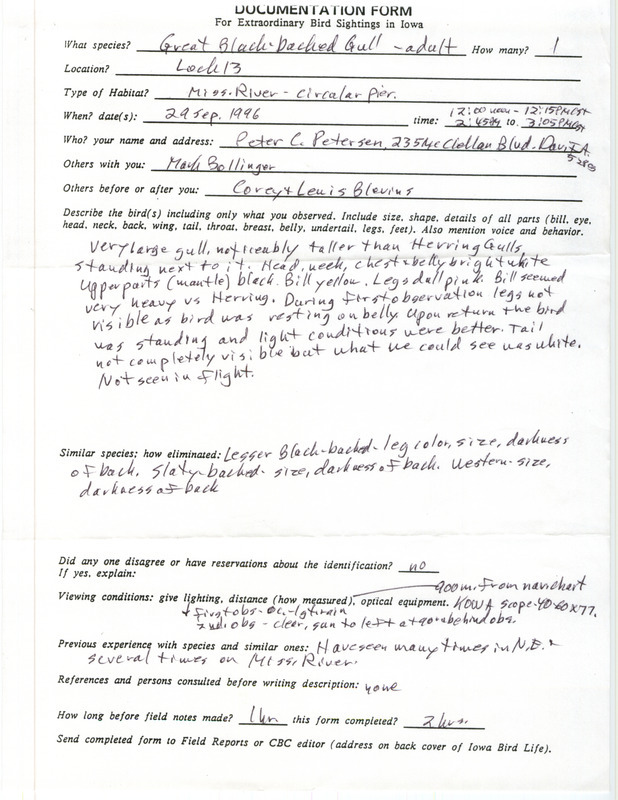 DOCUMENTATION FORM
For Extraordinary Bird Sightings in Iowa
What species? Great Black-backed Gull - adult How many? 1
Location? Lock 13
Type of Habitat? Miss. River - circular pier.
12:00 noon - 12:15PM CST
When? date(s): 29 Sep. 1996 time: 2:45PM to 3:05PM CST
Who? your name and address: Peter C. Petersen, 235 McClellan Blvd. Dav. IA.
52803
Others with you: Mark Bollinger
Others before or after you: Corey & Lewis Blevins
Describe the bird(s) including only what you observed. Include size, shape, details of all parts (bill, eye,
head, neck, back, wing, tail, throat, breast, belly, undertail, legs, feet). Also mention voice and behavior.
Very large gull, noticeably taller than Herring Gulls
standing next to it. Head, neck, chest & belly bright white
Upperparts (mantle) black. Bill yellow. Legs dull pink. Bill seemed
very heavy vs Herring. During first observation legs not
visible as bird was resting on belly. Upon return the bird
was standing and light conditions were better. Tail
not completely visible but what we could see was white.
Not seen in flight.
Similar species; how eliminated: Lesser Black-backed - leg color, size, darkness
of back. Slaty-backed - size, darkness of back. Western - size,
darkness of back
Did any one disagree or have reservations about the identification? no
If yes, explain:
900 m. from nav. chart
Viewing conditions: give lighting, distance (how measured), optical equipment. KOWA scope - 40-60X77.
first obs - oc. - lgt rain
2nd obs - clear, sun to left at 90° behind obs.
Previous experience with species and similar ones: Have seen many times in N.E. &
several times on Miss. River.
References and persons consulted before writing description: none
How long before field notes made? 1 hr this form completed? 2 hrs.
Send completed form to Field Reports or CBC editor (address on back cover of Iowa Bird Life).